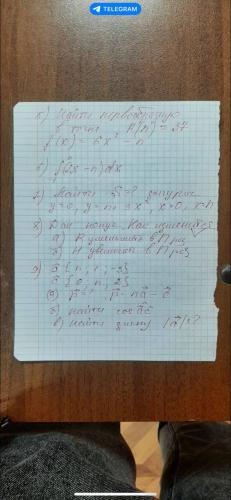 TELEGRAM
а) Найти первообразную
в точке A(n) = 27
f(x) = 5x² - n
б) ∫(2x - n)dx
2) Найти S = ? фигуры
y=0, y=n+x², x=0, x=n
3) Дан конус. Как изменится
а) R уменьшить в n раз
б) H увеличить в n раз
ā {n, 1, -3}
c̄ {0, n, 2}
а) p̄ = ? p̄ = nā - c̄
б) найти cos āc̄
в) найти длину |ā| = ?